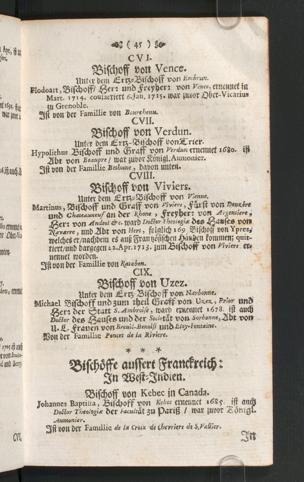 ( 45 )
CVI.
Bischoff von Vence.
Unter dem Ertz-Bischoff von Embrun.
Flodoart, Bischoff/ Herr und Freyherr von Vence, ernennet in
Mart. 1714. consacrirt 6. Jan. 1715. war zuvor Ober-Vicarius
zu Grenoble.
Ist von der Famillie von Bourchenu.
CVII.
Bischoff von Verdun.
Unter dem Ertz-Bischoff von Trier.
Hypolithus Bischoff und Graff von Verdun ernennet 1680. ist
Abt von Beaupre/ war zuvor Königl. Aumonier.
Ist von der Famillie Bethune, davon unten.
CVIII.
Bischoff von Viviers.
Unter dem Ertz-Bischoff von Vienne.
Martinus, Bischoff und Graff von Viviers, Fürst von Donzère
und Chateauneuf an der Rhone, Freyherr von Argentiere,
Herr von &c. ward Doctor Theologiæ des Hauses von
Navarre, und Abt von folglich 169 Bischoff von Ypres,
welches er/ nachdem es aus Frantzösischen Händen kommen; quit-
tirt/ und dargegen 12. Apr. 1713. zum Bischoff von Viviers er-
nennet worden.
Ist von der Famillie von Rataban.
CIX.
Bischoff von Uzez.
Unter dem Ertz-Bischoff von Narbonne.
Michael Bischoff und zum theil Graff von Uzez, Prior und
Herr der Statt S. Ambroise, ward ernennet 1678. ist auch
Doctor des Hauses und der Societät von Sorbonne, Abt von
U. L. Frauen von Breuil-Benoist und Livy-Fontaine.
Von der Famillie Poncet de la Riviere.
* * *
Bischöffe aussert Franckreich:
In West-Indien.
Bischoff von Kebec in Canada.
Johannes Baptista, Bischoff von Kebec ernennet 1685. ist auch
Doctor Theologiæ der Facultät zu Pariß/ war zuvor Königl.
Aumonier.
Ist von der Famillie de la Croix de Chevriere de S. Vallier.
In